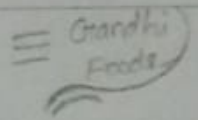 Gandhi
Foods